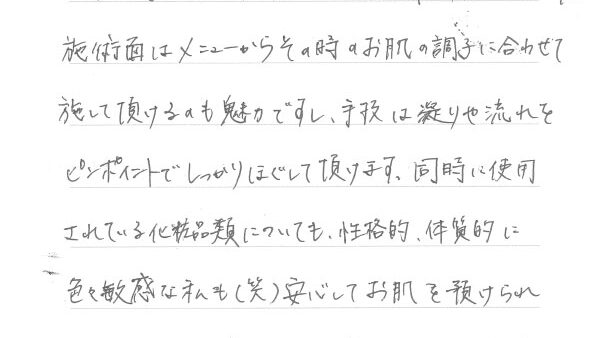 施術面はメニューからその時のお肌の調子に合わせて
施して頂けるのも魅力ですし、手技は凝りや流れを
ピンポイントでしっかりほぐして頂けます。同時に使用
されている化粧品類についても、性格的、体質的に
色々敏感な私も(笑)安心してお肌を預けられ